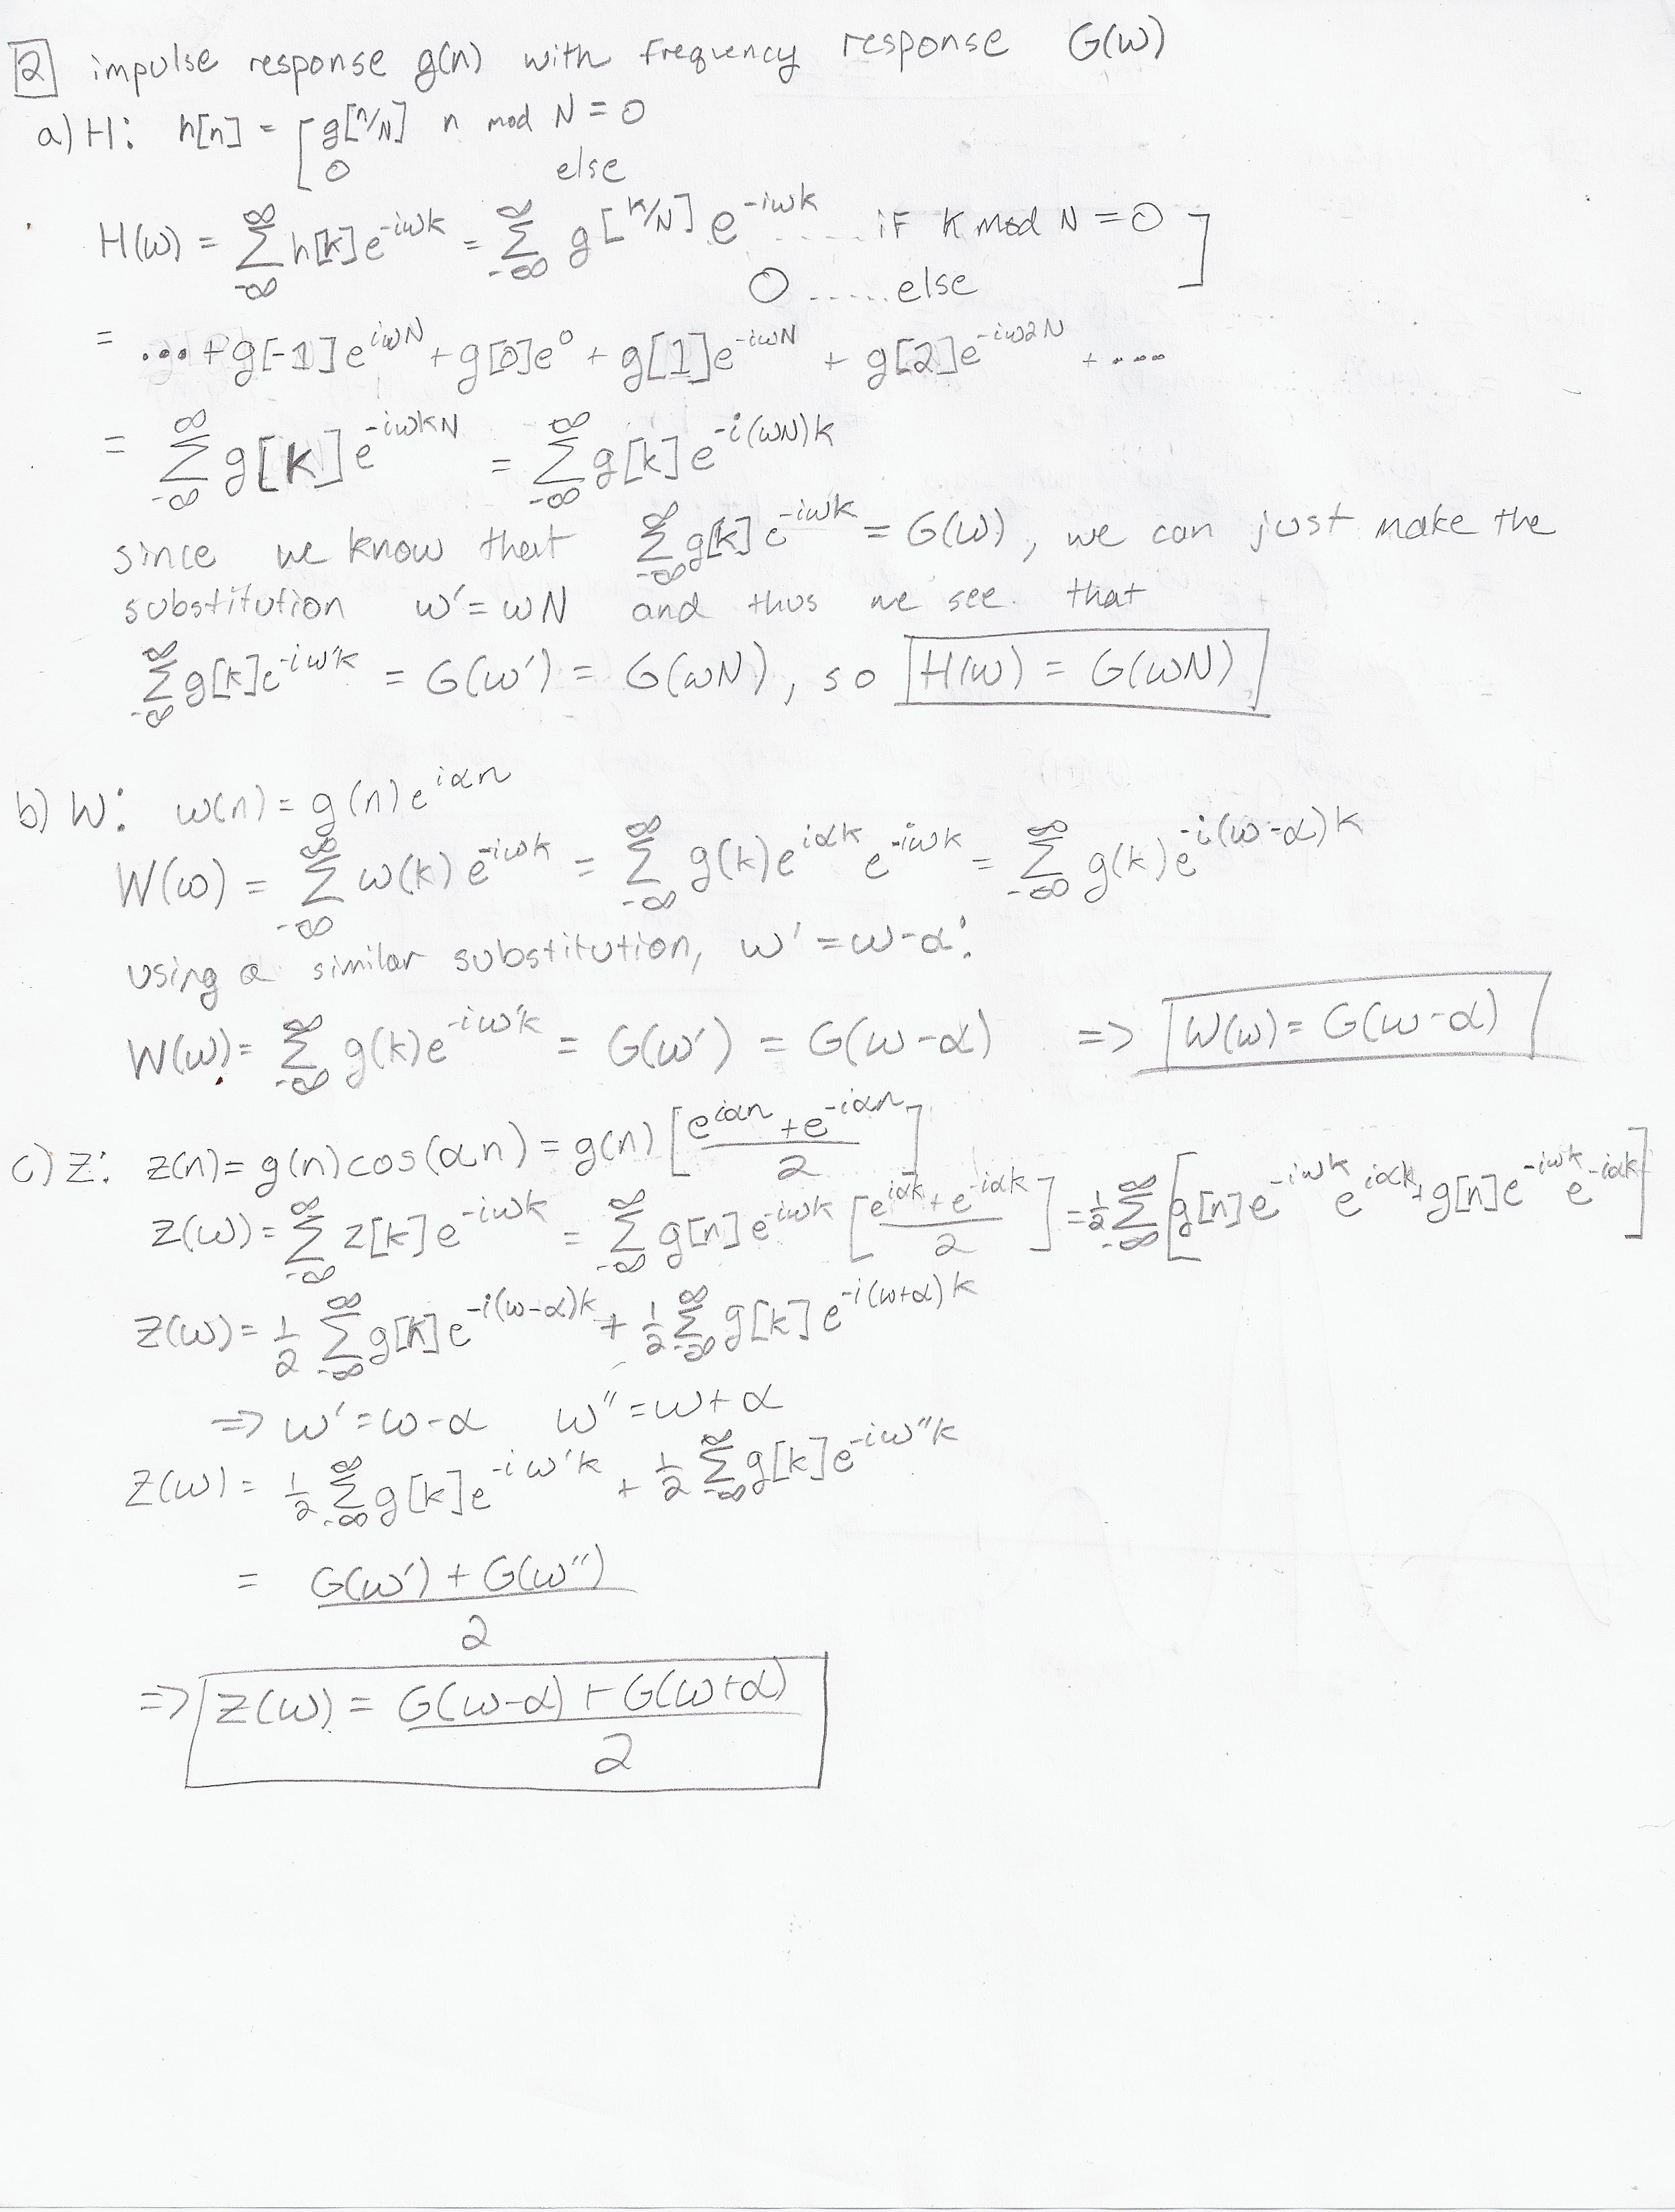 2 impulse response g(n) with frequency response G(ω)
a) H: h[n] = [ g[n/N] n mod N = 0
0 else
H(ω) = ∑_{-∞}^{∞} h[k]e^{-iωk} = ∑_{-∞}^{∞} g[k/N] e^{-iωk} ..... if k mod N = 0 ]
0 ..... else
= ... + g[-1]e^{iωN} + g[0]e^0 + g[1]e^{-iωN} + g[2]e^{-iω2N} + ....
= ∑_{-∞}^{∞} g[k]e^{-iωkN} = ∑_{-∞}^{∞} g[k]e^{-i(ωN)k}
since we know that ∑_{-∞}^{∞} g[k]e^{-iωk} = G(ω), we can just make the
substitution ω' = ωN and thus we see that
∑_{-∞}^{∞} g[k]e^{-iω'k} = G(ω') = G(ωN), so H(ω) = G(ωN)
b) W: w(n) = g(n)e^{iαn}
W(ω) = ∑_{-∞}^{∞} ω(k) e^{-iωk} = ∑_{-∞}^{∞} g(k)e^{iαk} e^{-iωk} = ∑_{-∞}^{∞} g(k)e^{-i(ω-α)k}
using a similar substitution, ω' = ω-α:
W(ω) = ∑_{-∞}^{∞} g(k)e^{-iω'k} = G(ω') = G(ω-α) => W(ω) = G(ω-α)
c) Z: z(n) = g(n)cos(αn) = g(n) [(e^{iαn} + e^{-iαn})/2]
Z(ω) = ∑_{-∞}^{∞} z[k]e^{-iωk} = ∑_{-∞}^{∞} g[n]e^{-iωk} [(e^{iαk} + e^{-iαk})/2] = 1/2 ∑_{-∞}^{∞} [g[n]e^{-iωk} e^{iαk} + g[n]e^{-iωk} e^{-iαk}]
Z(ω) = 1/2 ∑_{-∞}^{∞} g[k]e^{-i(ω-α)k} + 1/2 ∑_{-∞}^{∞} g[k]e^{-i(ω+α)k}
=> ω' = ω-α ω'' = ω+α
Z(ω) = 1/2 ∑_{-∞}^{∞} g[k]e^{-iω'k} + 1/2 ∑_{-∞}^{∞} g[k]e^{-iω''k}
= (G(ω') + G(ω''))/2
=> Z(ω) = (G(ω-α) + G(ω+α))/2